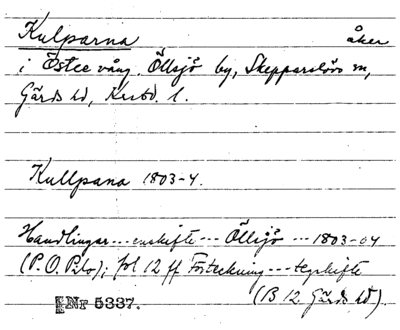 Kulparna åker
i Östre vång. Öllsjö by, Skepparslövs sn,
Gärds hd, Krstd. l.
Kullpana 1803-4.
Handlingar --- enskifte --- Öllsjö --- 1803-04
(P. O. Pilo); fol 12 ff Förteckning --- tegskifte
Nr 5337. (B 12 Gärds hd).